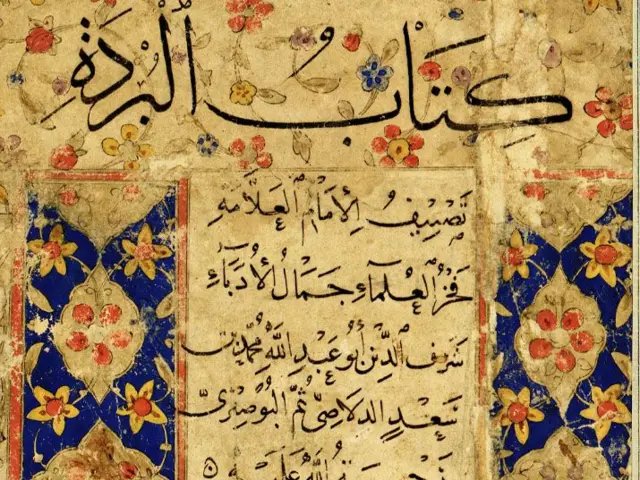 كِتَابُ الْبُرْدَةِ
تَصْنِيفُ الْإِمَامِ الْعَلَّامَةِ
فَخْرُ الْعُلَمَاءِ جَمَالُ الْأُدَبَاءِ
شَرَفِ الدِّينِ أَبُو عَبْدِ اللَّهِ مُحَمَّدِ بْنِ
سَعِيدٍ الدَّلَاصِىِّ ثُمَّ الْبُوصِيرِىِّ
اللَّهِ عَلَيْهِ